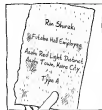 Ren Shuraki
Futaba Hall Employee
Asahi Red Light District
Asahi Town, Kano City
Type A